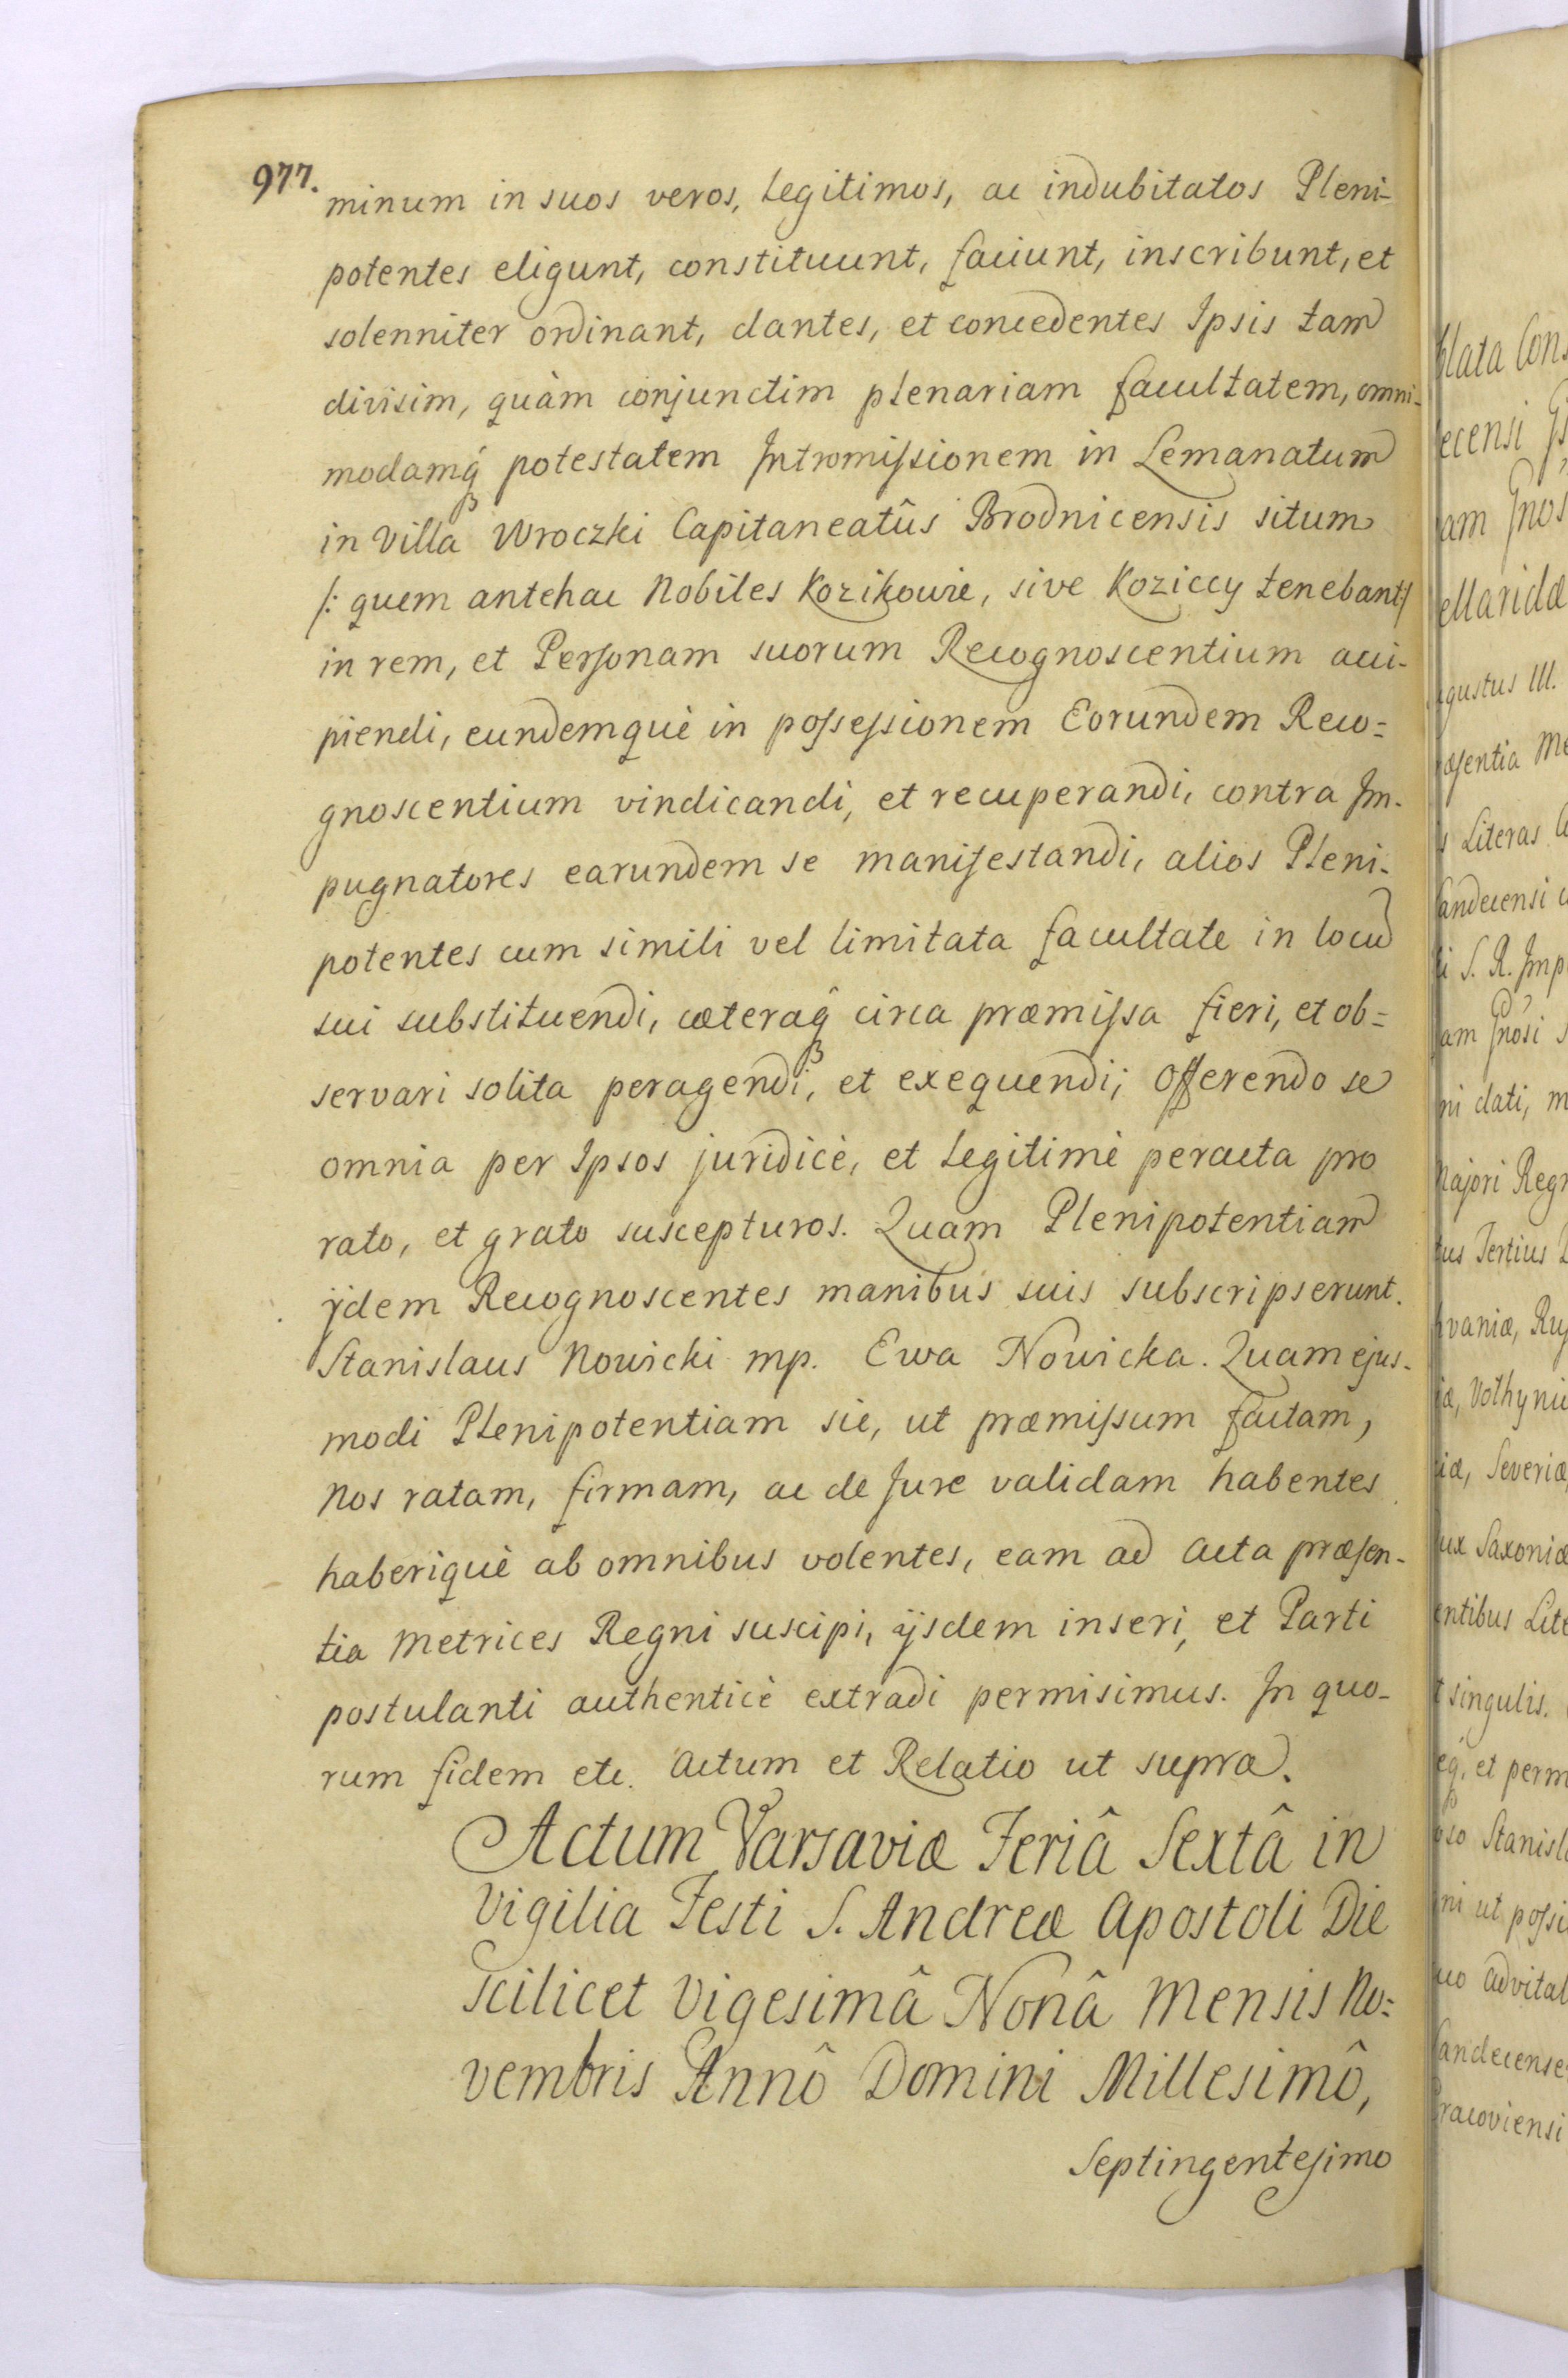 977.
minum in suos veros, Legitimos, ac indubitatos Pleni-
potentes eligunt, constituunt, faciunt, inscribunt, et
solenniter ordinant, dantes, et concedentes Ipsis tam
divisim, quàm conjunctim plenariam facultatem, omni-
modamq́ potestatem Intromissionem in Lemanatum
in Villa Wroczki Capitaneatûs Brodnicensis situm
/: quem antehac Nobiles Kozikowie, sive Koziccy tenebant:/
in rem, et Personam suorum Recognoscentium acci-
piendi, eundemquè in possessionem Eorundem Reco=
gnoscentium vindicandi, et recuperandi, contra Im-
pugnatores earundem se manifestandi, alios Pleni-
potentes cum simili vel limitata facultate in locu
sui substituendi, cæteraq́ circa præmissa fieri, et ob=
servari solita peragendi, et exequendi; Offerendo se
omnia per Ipsos juridicè, et Legitimè peracta pro
rato, et grato suscepturos. Quam Plenipotentiam
ijdem Recognoscentes manibus suis subscripserunt.
Stanislaus Nowicki mp. Ewa Nowicka. Quam ejus-
modi Plenipotentiam sic, ut præmissum factam,
Nos ratam, firmam, ac de Jure validam habentes
haberiquè ab omnibus volentes, eam ad Acta præsen-
tia Metrices Regni suscipi, ijsdem inseri, et Parti
postulanti authenticè extradi permisimus. In quo-
rum fidem etc. Actum et Relatio ut supra.
Actum Varsaviæ Feriâ Sextâ in
Vigilia Festi S. Andreæ Apostoli Die
scilicet Vigesimâ Nonâ Mensis No=
vembris Annô Domini Millesimô,
Septingentesimo